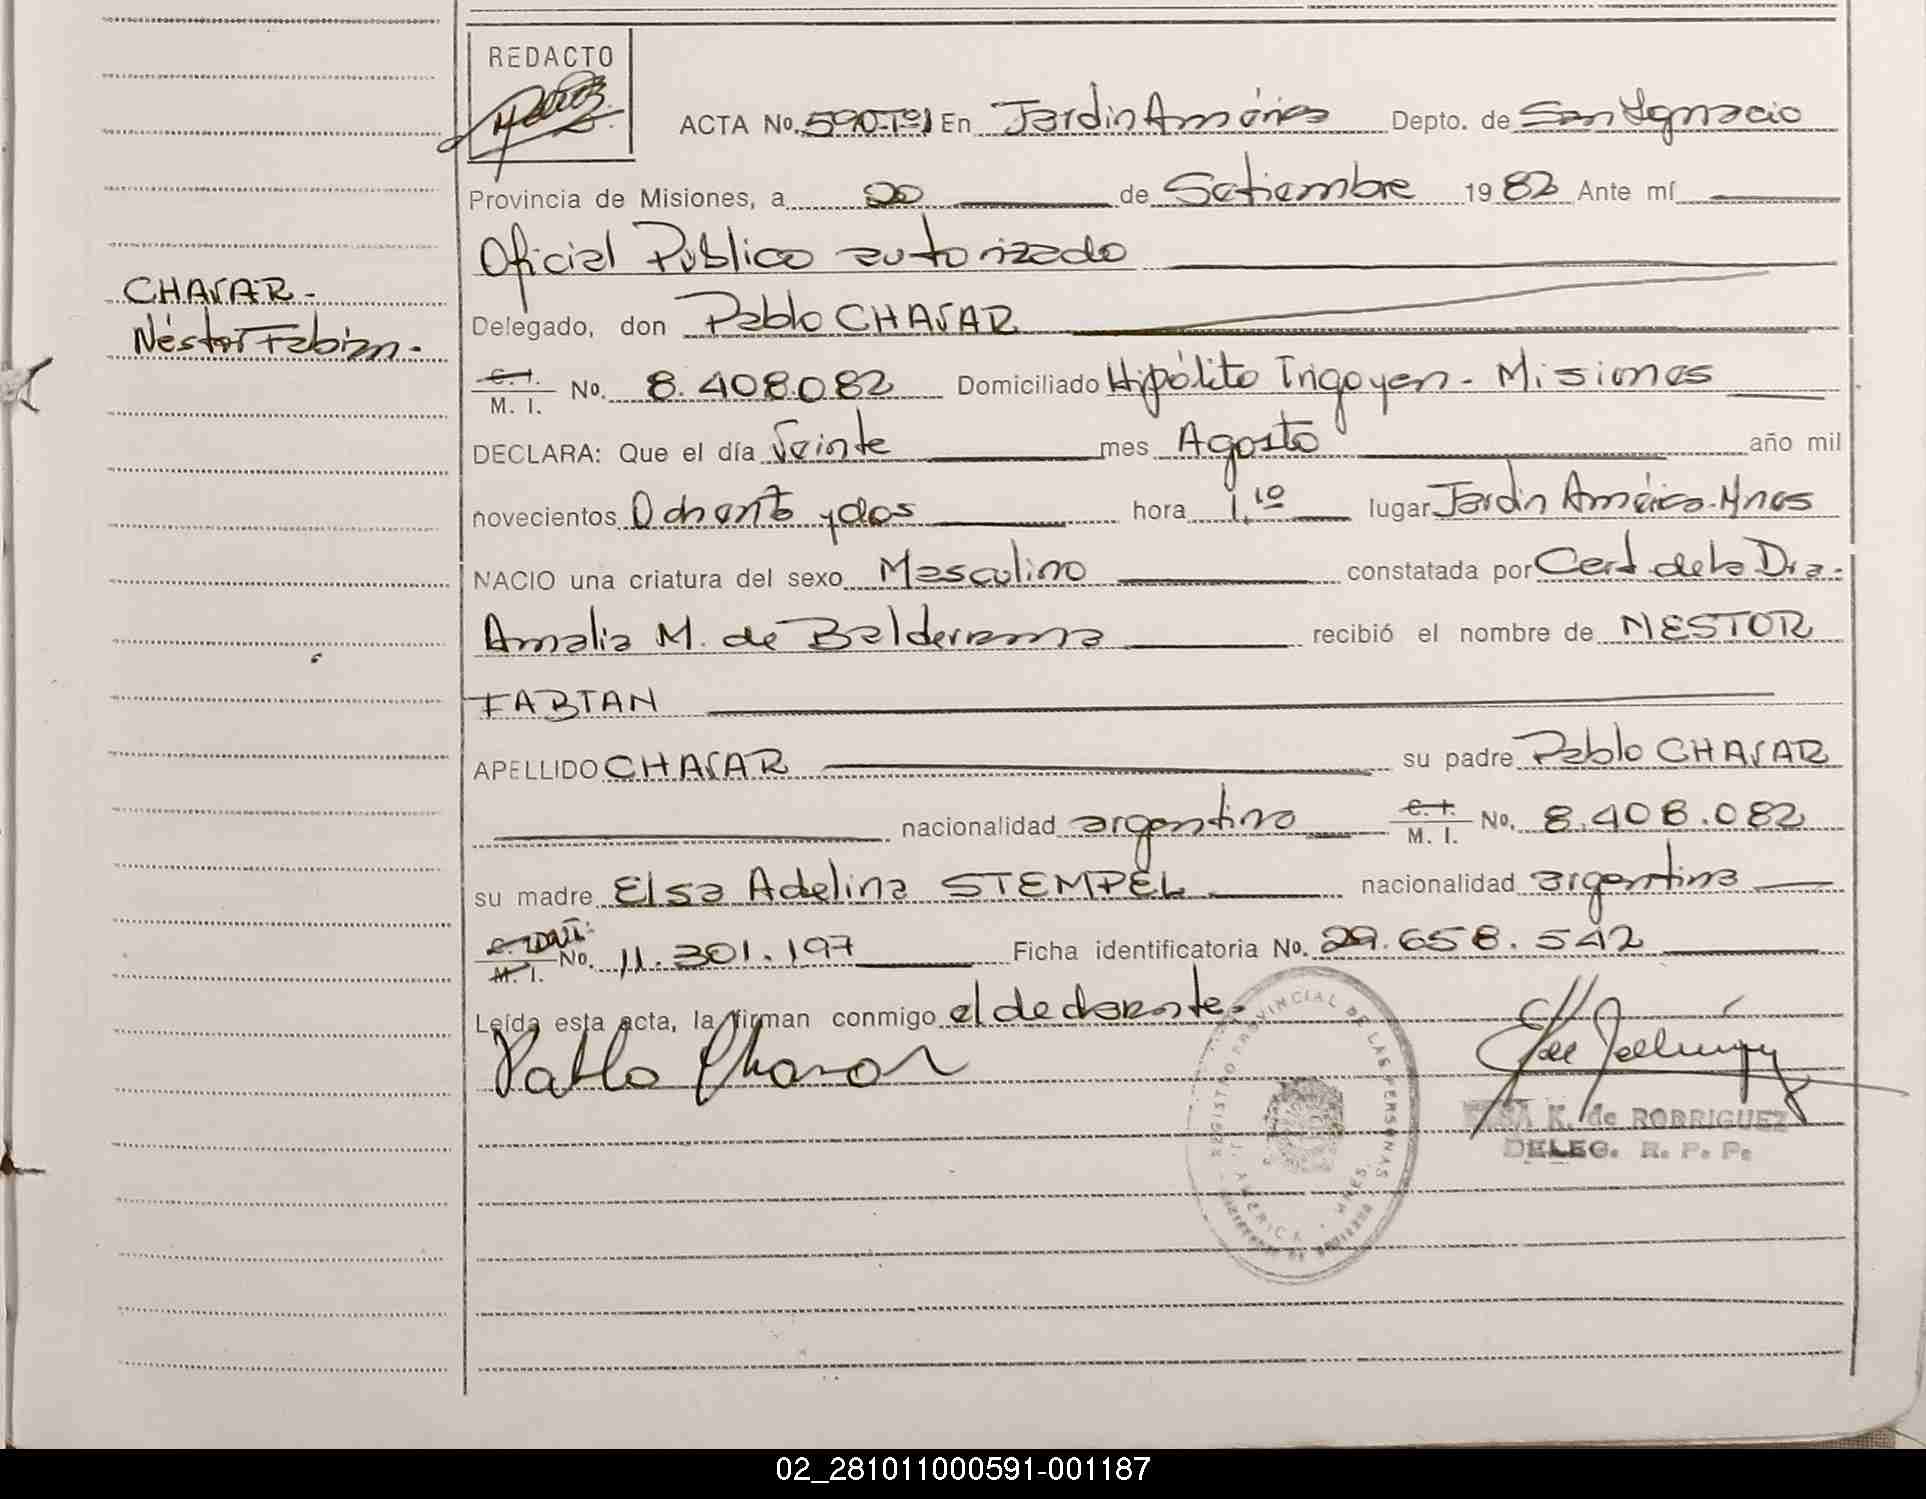 REDACTO
ACTA No. 590-Tº1 En Jardin América Depto. de San Ignacio
Provincia de Misiones, a 20 de Setiembre 1982 Ante mí
Oficial Público autorizado
CHASAR-
Delegado, don Pablo CHASAR
Néstor Fabian.
C. I.
M. I. No. 8.408.082 Domiciliado Hipólito Irigoyen - Misiones
DECLARA: Que el día Veinte mes Agosto año mil
novecientos Ochenta y dos hora 1,10 lugar Jardin América-Mnes
NACIO una criatura del sexo Masculino constatada por Cert de la Dra.
Amalia M. de Balderrama recibió el nombre de NESTOR
FABIAN
APELLIDO CHASAR su padre Pablo CHASAR
nacionalidad argentina C. I. M. I. No. 8.408.082
su madre Elsa Adelina STEMPEL nacionalidad argentina
M. I. No. 11.301.197 Ficha identificatoria No. 29.658.542
Leída esta acta, la firman conmigo el declarante.
Pablo Chasar
REGISTRO PROVINCIAL DE LAS PERSONAS
J. AMERICA - MNES.
K. de RODRIGUEZ
DELEG. R. P. P.
02_281011000591-001187